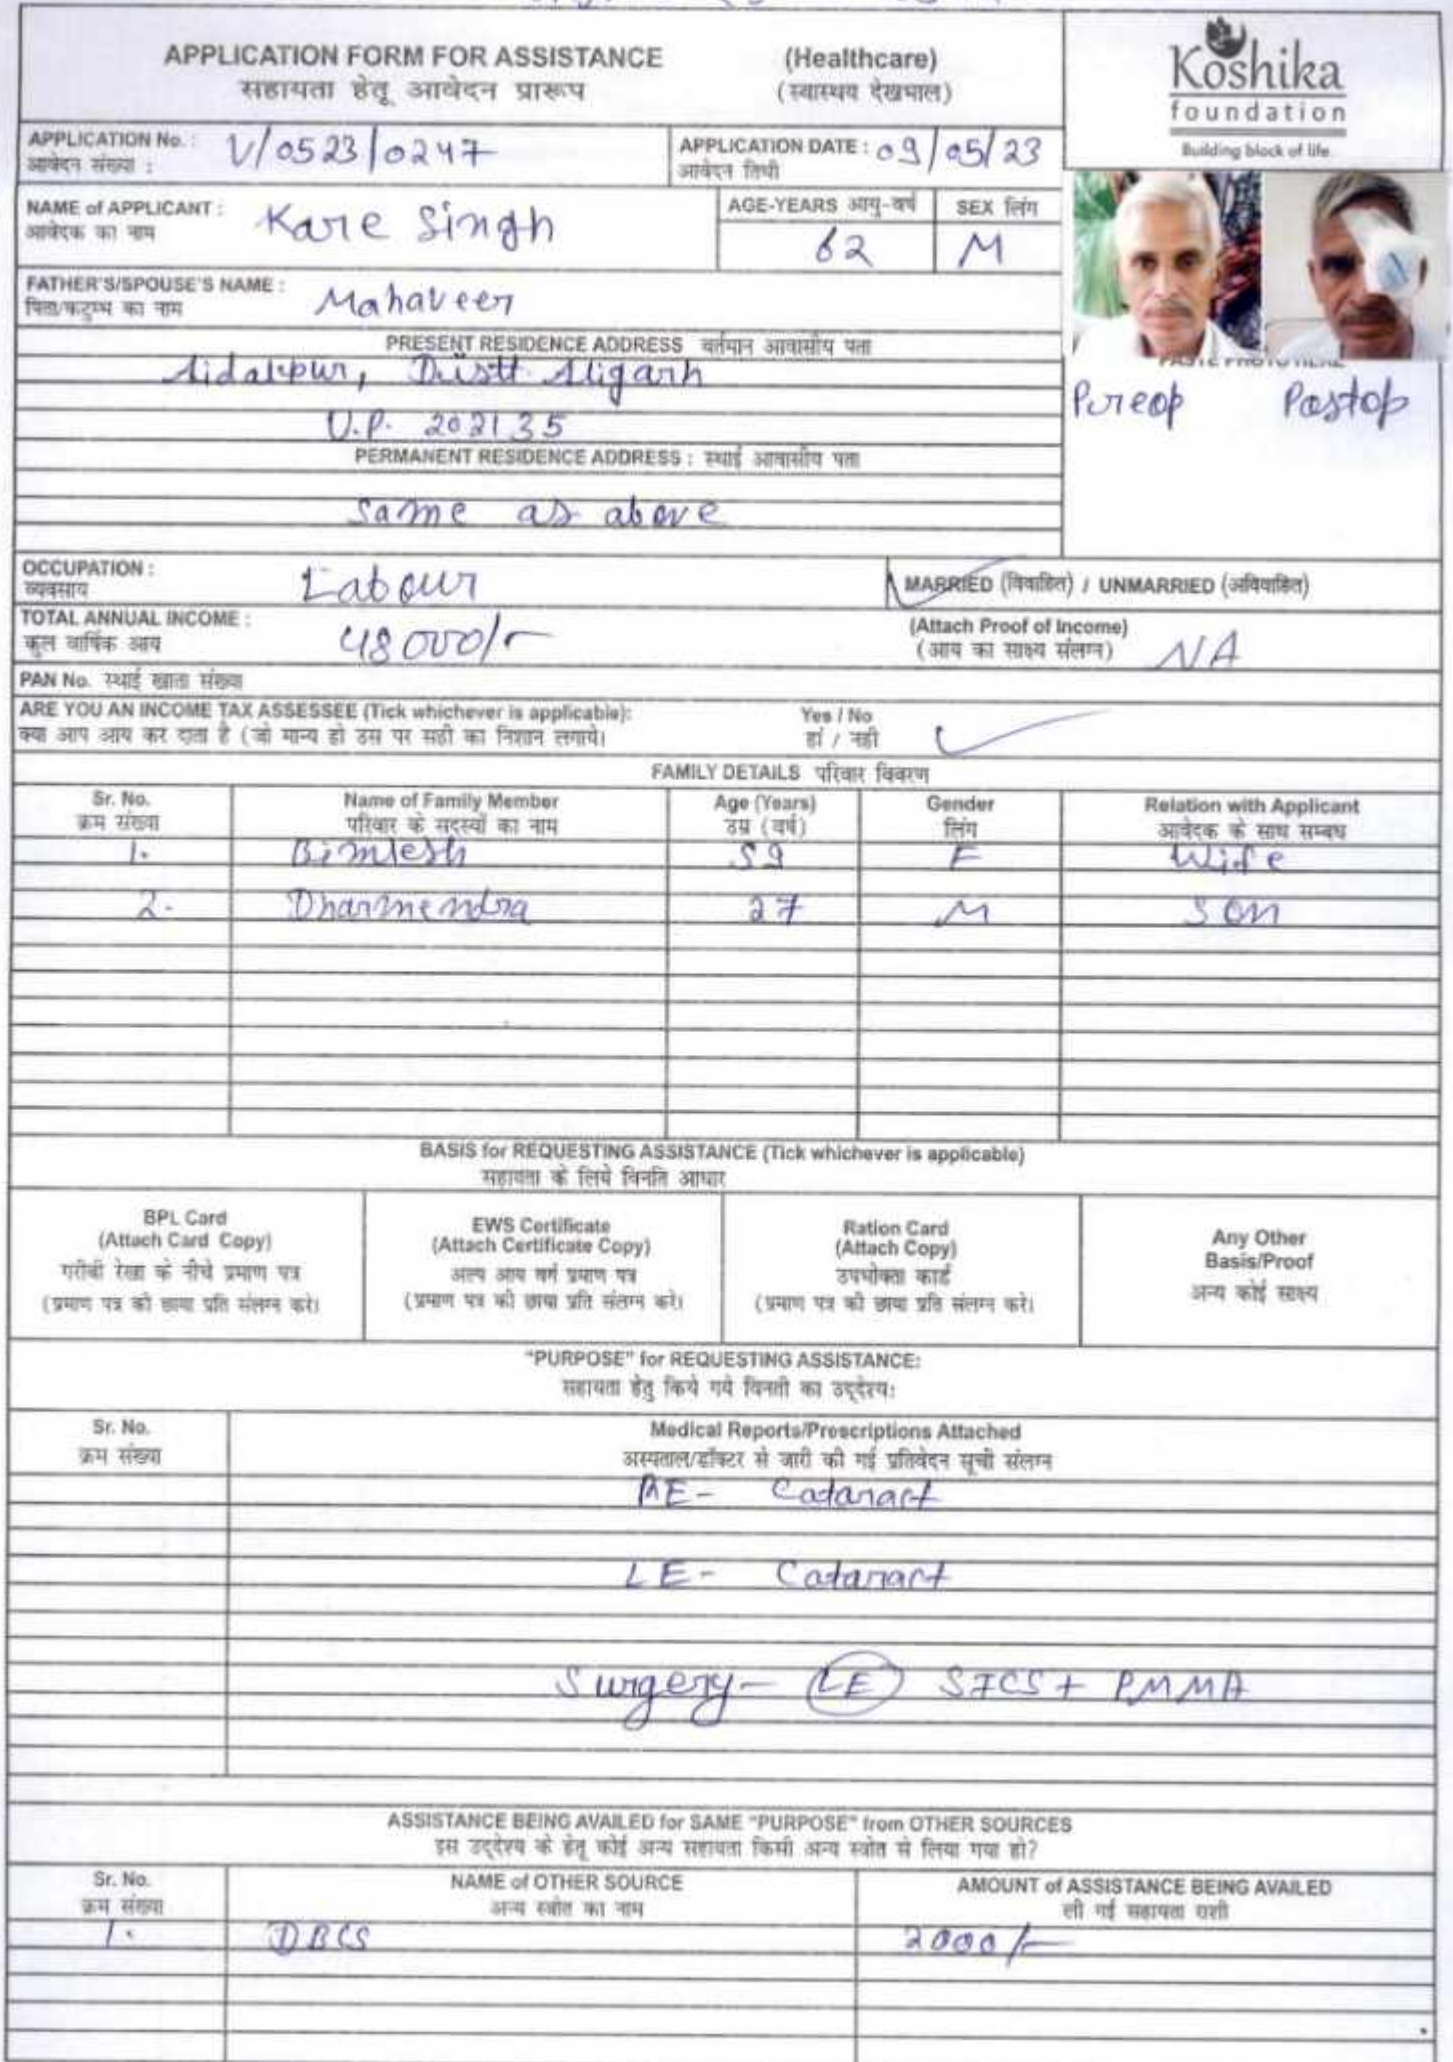 APPLICATION FORM FOR ASSISTANCE (Healthcare)
सहायता हेतू आवेदन प्रारूप (स्वास्थय देखभाल)
Koshika
foundation
Building block of life
APPLICATION No. : V/0523/0247
आवेदन संख्या :
APPLICATION DATE : 09/05/23
आवेदन तिथी
NAME of APPLICANT : Kare Singh
आवेदक का नाम
AGE-YEARS आयु-वर्ष
62
SEX लिंग
M
FATHER'S/SPOUSE'S NAME : Mahaveer
पिता/कटुम्भ का नाम
PRESENT RESIDENCE ADDRESS वर्तमान आवासीय पता
Aidalpur, Distt Aligarh
U.P. 202135
PASTE PHOTO HERE
Preop Postop
PERMANENT RESIDENCE ADDRESS : स्थाई आवासीय पता
Same as above
OCCUPATION : Labour
व्यवसाय
MARRIED (विवाहित) / UNMARRIED (अविवाहित)
TOTAL ANNUAL INCOME : 48000/-
कुल वार्षिक आय
(Attach Proof of Income)
(आय का साक्ष्य संलग्न) NA
PAN No. स्थाई खाता संख्या
ARE YOU AN INCOME TAX ASSESSEE (Tick whichever is applicable): Yes / No
क्या आप आय कर दाता है (जो मान्य हो उस पर सही का निशान लगाये। हां / नही
FAMILY DETAILS परिवार विवरण
Sr. No. Name of Family Member Age (Years) Gender Relation with Applicant
क्रम संख्या परिवार के सदस्यों का नाम उम्र (वर्ष) लिंग आवेदक के साथ सम्बध
1. Bimlesh 59 F Wife
2. Dharmendra 27 M Son
BASIS for REQUESTING ASSISTANCE (Tick whichever is applicable)
सहायता के लिये विनति आधार
BPL Card
(Attach Card Copy)
गरीबी रेखा के नीचे प्रमाण पत्र
(प्रमाण पत्र की छाया प्रति संलग्न करे।
EWS Certificate
(Attach Certificate Copy)
अल्प आय वर्ग प्रमाण पत्र
(प्रमाण पत्र की छाया प्रति संलग्न करे।
Ration Card
(Attach Copy)
उपभोक्ता कार्ड
(प्रमाण पत्र की छाया प्रति संलग्न करे।
Any Other
Basis/Proof
अन्य कोई साक्ष्य
"PURPOSE" for REQUESTING ASSISTANCE:
सहायता हेतु किये गये विनती का उद्देश्य:
Sr. No. Medical Reports/Prescriptions Attached
क्रम संख्या अस्पताल/डॉक्टर से जारी की गई प्रतिवेदन सूची संलग्न
RE- Cataract
LE- Cataract
Surgery- LE SICS + PMMA
ASSISTANCE BEING AVAILED for SAME "PURPOSE" from OTHER SOURCES
इस उद्देश्य के हेतू कोई अन्य सहायता किसी अन्य स्त्रोत से लिया गया हो?
Sr. No. NAME of OTHER SOURCE AMOUNT of ASSISTANCE BEING AVAILED
क्रम संख्या अन्य स्त्रोत का नाम ली गई सहायता राशी
1. DBCS 2000/-